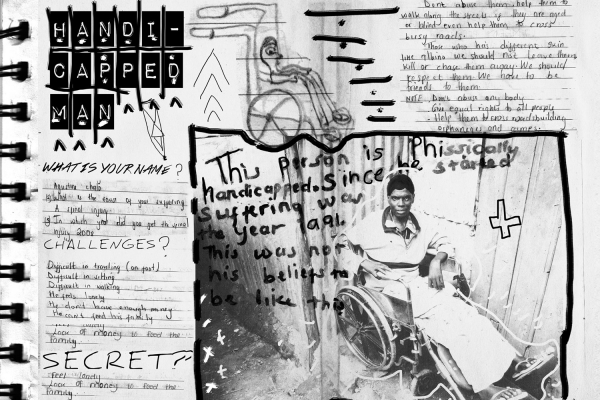 HANDI-
CAPPED
MAN
Dont abuse them, help them to
walk along the streets if they are aged
or blind even help them to cross
busy roads.
Those who has different skin
like Albino we should not leave them
kill or chase them away. We should
respect them. We have to be
friends to them.
NOTE: Dont abuse any body
Give equal rights to all people
Help them to cross road, building
orphanages and games.
WHAT IS YOUR NAME?
What is the cause of your suffering
A spinal injury
In which year did you get the spinal
injury 2002
CHALLENGES?
Difficult in traveling (on foot)
Difficult in sitting
Difficult in walking
He feels lonely
He dont have enough money
He cant feed his family
Lack of money to feed the
family
SECRET?
Feel lonely
Lack of money to feed the
family
This person is Phissically
handicapped. Since he started
suffering was
the year 1991.
This was not
his beliefs to
be like this